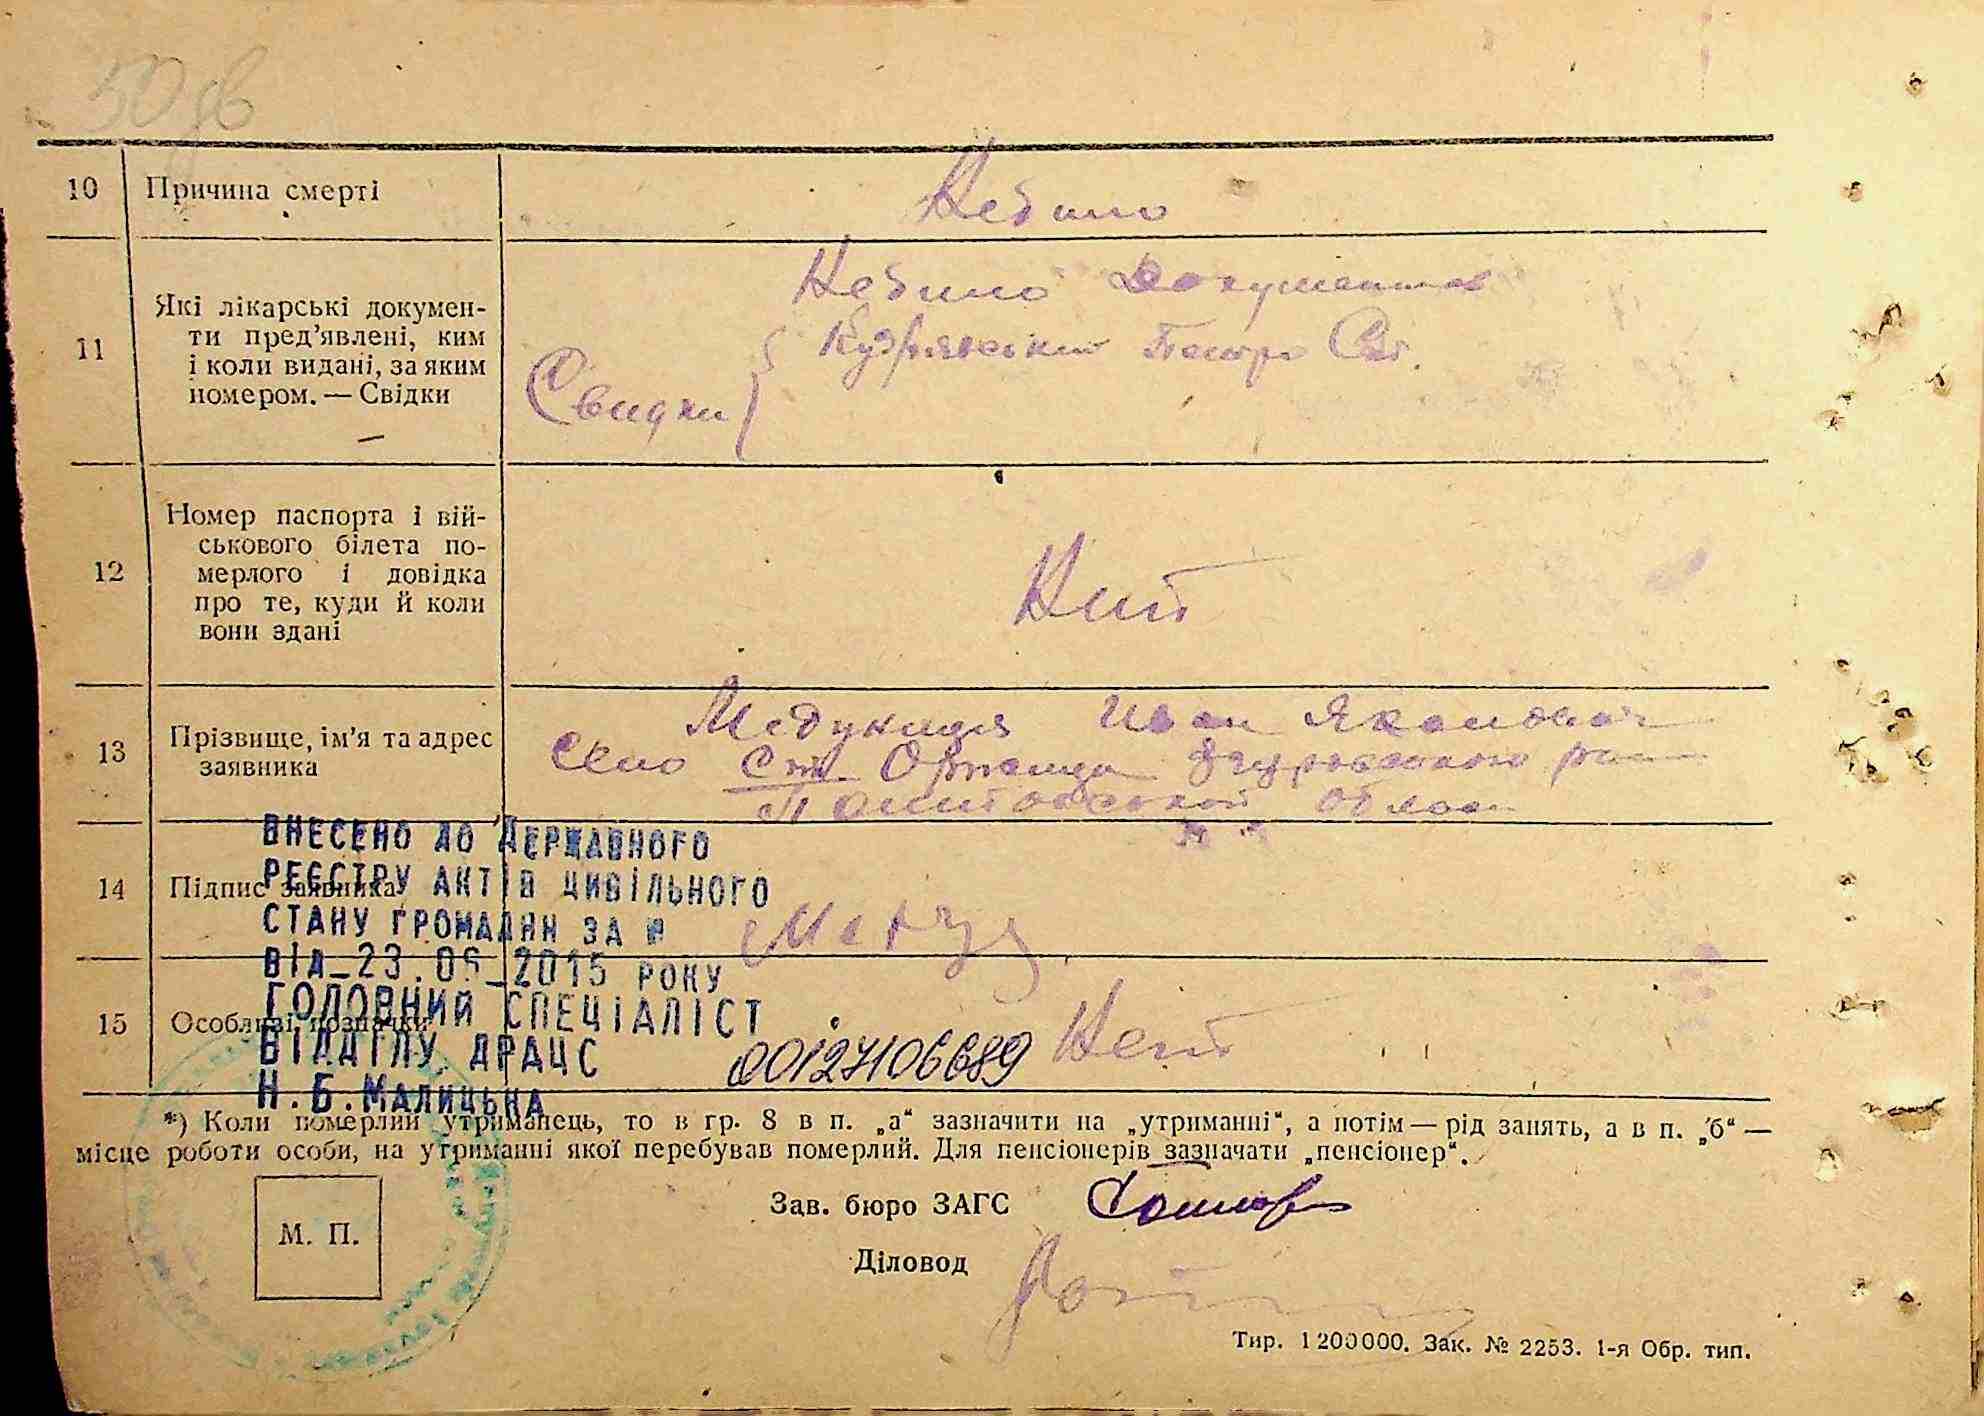 50 зв
10 Причина смерті
Небило
11 Які лікарські докумен-
ти пред’явлені, ким
і коли видані, за яким
номером. — Свідки
Небило Документов
Свидки { Петро
12 Номер паспорта і вій-
ськового білета по-
мерлого і довідка
про те, куди й коли
вони здані
Нит
13 Прізвище, ім’я та адрес
заявника
Иван
Село Ст. Оржица
области
14 Підпис заявника
ВНЕСЕНО ДО ДЕРЖАВНОГО
РЕЄСТРУ АКТІВ ЦИВІЛЬНОГО
СТАНУ ГРОМАДЯН ЗА №
ВІД_23.06_2015 РОКУ
ГОЛОВНИЙ СПЕЦІАЛІСТ
ВІДДІЛУ ДРАЦС
Н.Б.МАЛИЦЬКА
00127106689
15 Особливі позначки
Нет
*) Коли померлий утриманець, то в гр. 8 в п. „а“ зазначити на „утриманні“, а потім — рід занять, а в п. „б“ —
місце роботи особи, на утриманні якої перебував померлий. Для пенсіонерів зазначати „пенсіонер“.
М. П.
Зав. бюро ЗАГС
Діловод
Тир. 1200000. Зак. № 2253. 1-я Обр. тип.